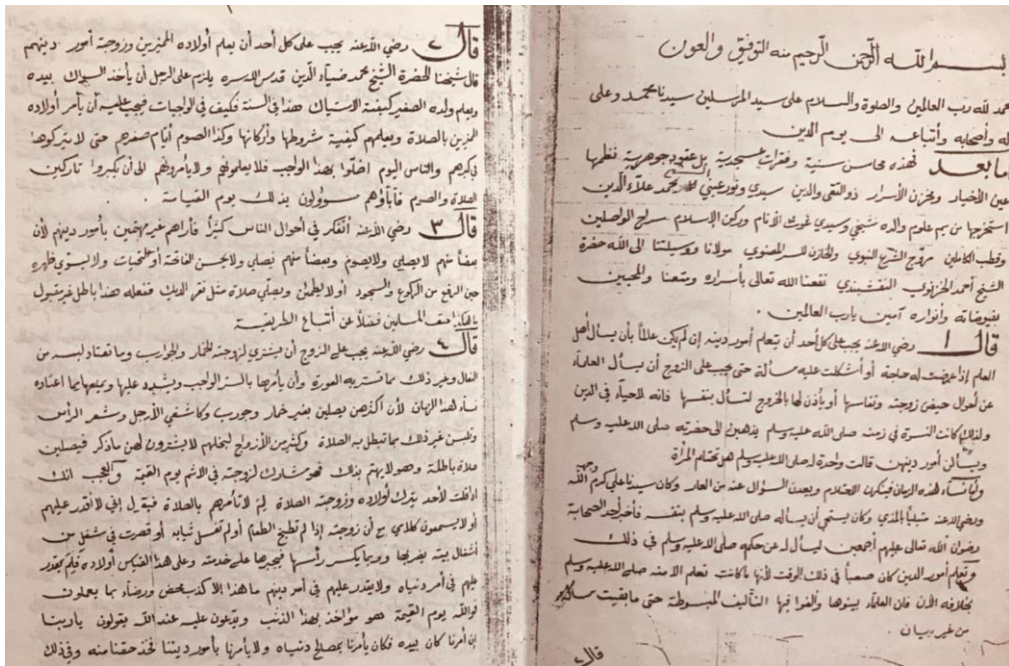 بسم الله الرحمن الرحيم منه التوفيق والعون
حمد لله رب العالمين والصلوة والسلام على سيد المرسلين سيدنا محمد وعلى
له وأصحابه وأتباعه الى يوم الدين
اما بعد فهذه محاسن سنية وفقرات عسجدية بل عقود جوهرية نظمها
عين الأخيار ومخزن الأسرار ذو التقى والدين سيدي ونور عيني الشيخ محمد علاء الدين
استخرجها من يم علوم والده شيخي وسيدي غوث الأنام وركن الإسلام سراج الواصلين
وقطب الكاملين مروّج الشرع النبوي والخازن للسر المعنوي مولانا ووسيلتنا الى الله حضرة
الشيخ أحمد الخزنوي النقشبندي نفعنا الله تعالى بأسراره ومتعنا والمحبين
بفيوضاته وانواره آمين يارب العالمين .
قال ١ رضي الله عنه يجب على كل أحد أن يتعلم أمور دينه إن لم يكن عالماً بأن يسأل أهل
العلم إذا عرضت له حاجة أو أشكلت عليه مسألة حتى يجب على الزوج أن يسأل العلماء
عن أحوال حيض زوجته ونفاسها أو يأذن لها بالخروج لتسأل بنفسها فانه لاحياء في الدين
ولذلك كانت النسوة في زمنه صلى الله عليه وسلم يذهبن الى حضرته صلى الله عليه وسلم
ويسألن أمور دينهن قالت واحدة له صلى الله عليه وسلم هل تحتلم المرأة
وأما نساء هذه الزمان فينكرن الاحتلام ويعدن السؤال عنه من العار وكان سيدنا علي كرم الله وجهه
ورضي الله عنه مبتلياً بالمذي وكان يستحي أن يسأله صلى الله عليه وسلم بنفسه فأخبر أحد الصحابة
رضوان الله تعالى عليهم أجمعين ليسأل له عن حكمه صلى الله عليه وسلم في ذلك
وتعلم أمور الدين كان صعباً في ذلك الوقت لأنها ما كانت تعلم الا منه صلى الله عليه وسلم
بخلافه الأن فان العلماء بينوها وألفوا فيها التآليف المبسوطة حتى مابقيت مسألة
من غير بيان .
قال ٢
قال ٢ رضي الله عنه يجب على كل أحد أن يعلم أولاده المميزين وزوجته أمور دينهم
قال شيخنا الحضرة الشيخ محمد ضياء الدين قدس الله سره يلزم على الرجل أن يأخذ السواك بيده
ويعلم ولده الصغير كيفية الاستياك هذا في السنة فكيف في الواجبات فيجب عليه أن يأمر أولاده
المميزين بالصلاة ويعلمهم كيفية شروطها واركانها وكذا الصوم أيام صغرهم حتى لا يتركوها
في كبرهم والناس اليوم اخلّوا بهذا الواجب فلا يعلمونهم ولا يأمرونهم الى أن يكبروا تاركين
الصلاة والصوم فآباؤهم مسؤولون بذلك يوم القيامة .
قال ٣ رضي الله عنه أتفكر في أحوال الناس كثيراً فأراهم غير مهتمين بأمور دينهم لأن
بعضاً منهم لا يصلي ولا يصوم وبعضاً منهم يصلي ولا يحسن الفاتحة أو التحيات ولا يسوي ظهره
حين الرفع من الركوع والسجود أو لا يطمئن ويصلي صلاة مثل نقر الديك ففعله هذا باطل غير مقبول
من المسلمين فضلاً عن أتباع الطريقة
قال ٤ رضي الله عنه يجب على الزوج أن يشتري لزوجته الخمار والجوارب وما تعتاد لبسه من
النعال وغير ذلك مما تستر به العورة وأن يأمرها بالستر الواجب ويشدد عليها ويمنعها بما اعتاده
نساء هذا الزمان لأن اكثرهن يصلين بغير خمار وجورب وكاشفي الأرجل وشعر الرأس
وتلبس غير ذلك مما تبطل به الصلاة وكثير من الأزواج لبخلهم لا يشترون لهن ما ذكر فيصلين
صلاة باطلة وهو لايهتم بذلك فهو مشارك لزوجته في الاثم يوم القيمة والعجب انك
اذا قلت لأحد يترك أولاده وزوجته الصلاة لِمَ لا تأمرهم بالصلاة فيقول إني لا أقدر عليهم
أو لا يسمعون كلامي مع أن زوجته إذا لم تطبخ الطعام أو لم تغسل ثيابه أو قصرت في شغل من
أشغال بيته يضربها وربما يكسر رأسها فيجبرها على خدمته وعلى هذا القياس أولاده فلِمَ يقدر
عليهم في أمر دنياه ولا يقدر عليهم في أمر دينهم ما هذا الا كذب محض ورضاء بما يعملون
فوالله يوم القيمة هو مؤاخذ بهذا الذنب ويدّعون عليه عند الله يقولون ياربنا
إن أمرنا كان بيده فكان يأمرنا بمصالح دنياه ولا يأمرنا بأمور ديننا فخذ حقنا منه وفي ذلك